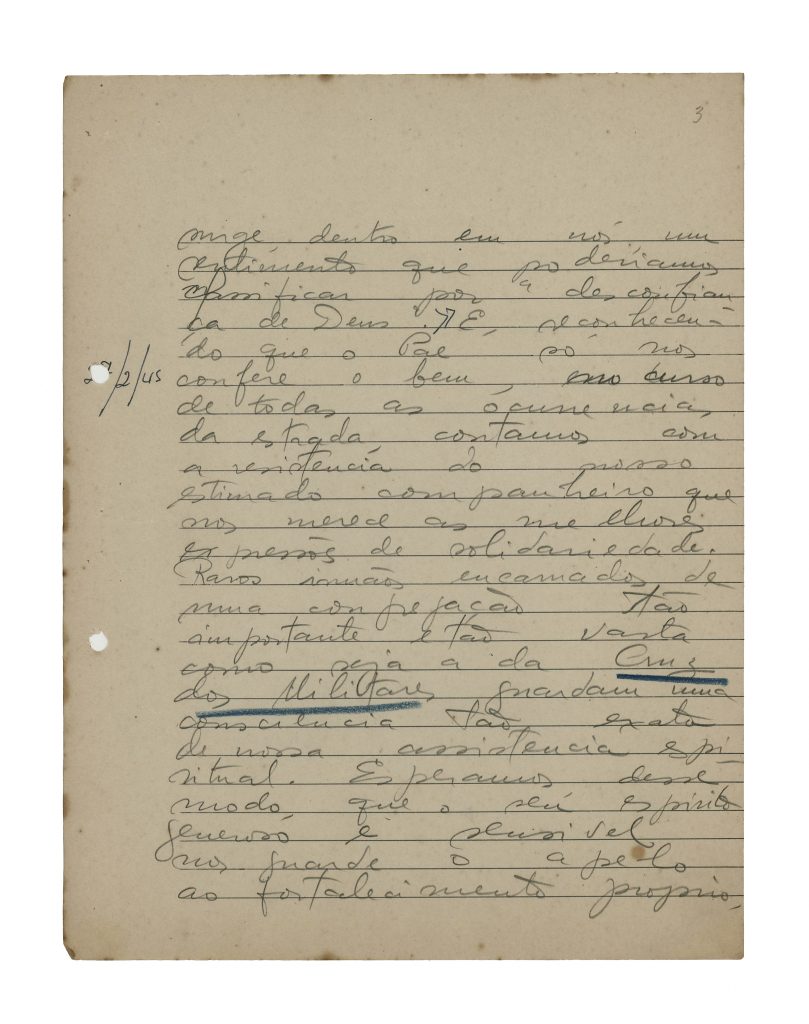 3
surge, dentro em nós um
sentimento que poderiamos
classificar por "desconfian
ça de Deus". E, reconhecen-
do que o Pae só nos
2/45
confere o bem, no curso
de todas as ocurrencias
da estrada, contamos com
a resistencia do nosso
estimado companheiro que
nos merece as melhores
expressões de solidariedade.
Raros irmãos encarnados de
uma congregação tão
importante e tão vasta
como seja a da Cruz
dos Militares guardam uma
consciencia tão exata
de nossa assistencia espi
ritual. Esperamos desse
modo, que o seu espirito
generoso e sensivel
nos guarde o apelo
ao fortalecimento proprio,